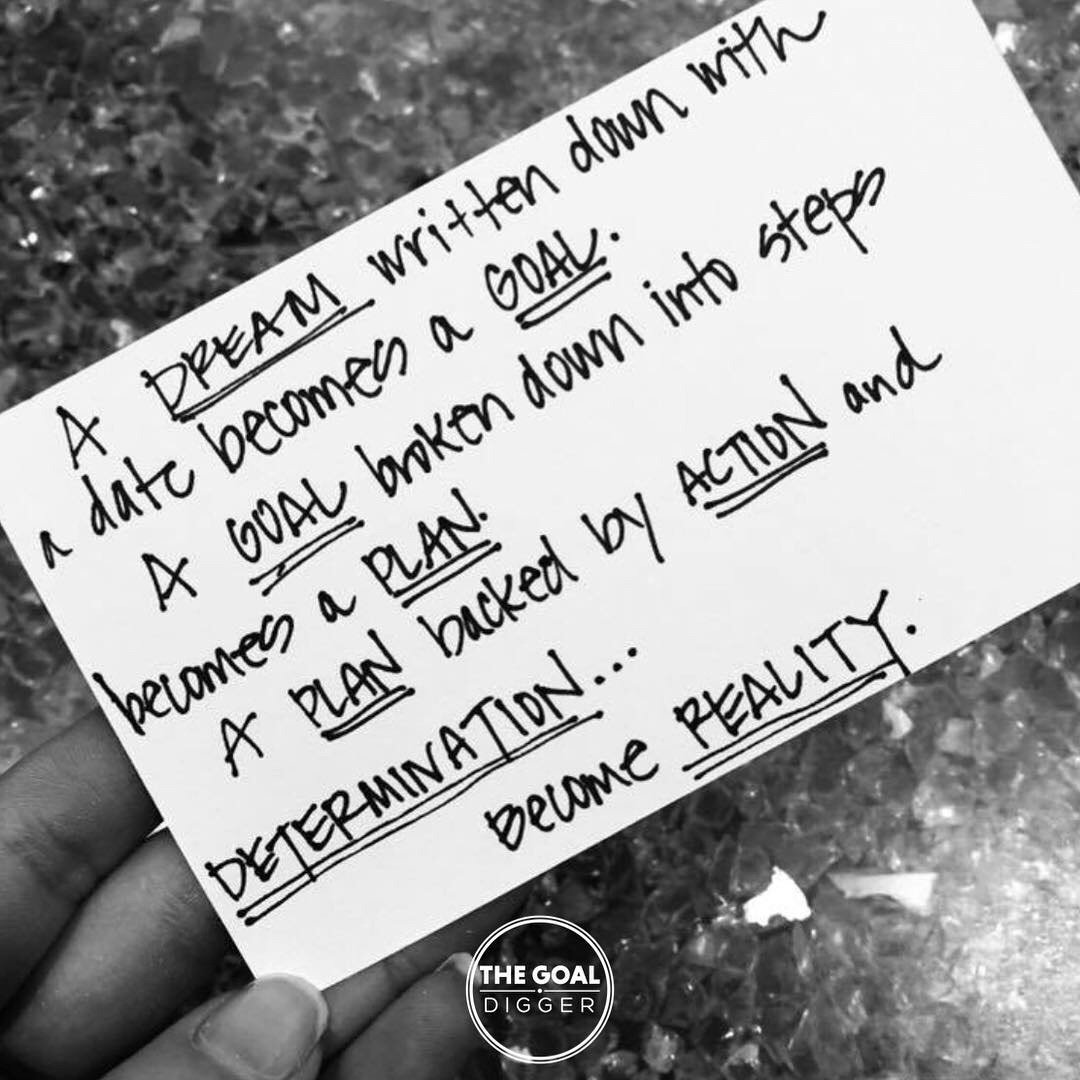 A DREAM written down with
a date becomes a GOAL.
A GOAL broken down into steps
becomes a PLAN.
A PLAN backed by ACTION and
DETERMINATION...
Become REALITY.
THE GOAL
DIGGER